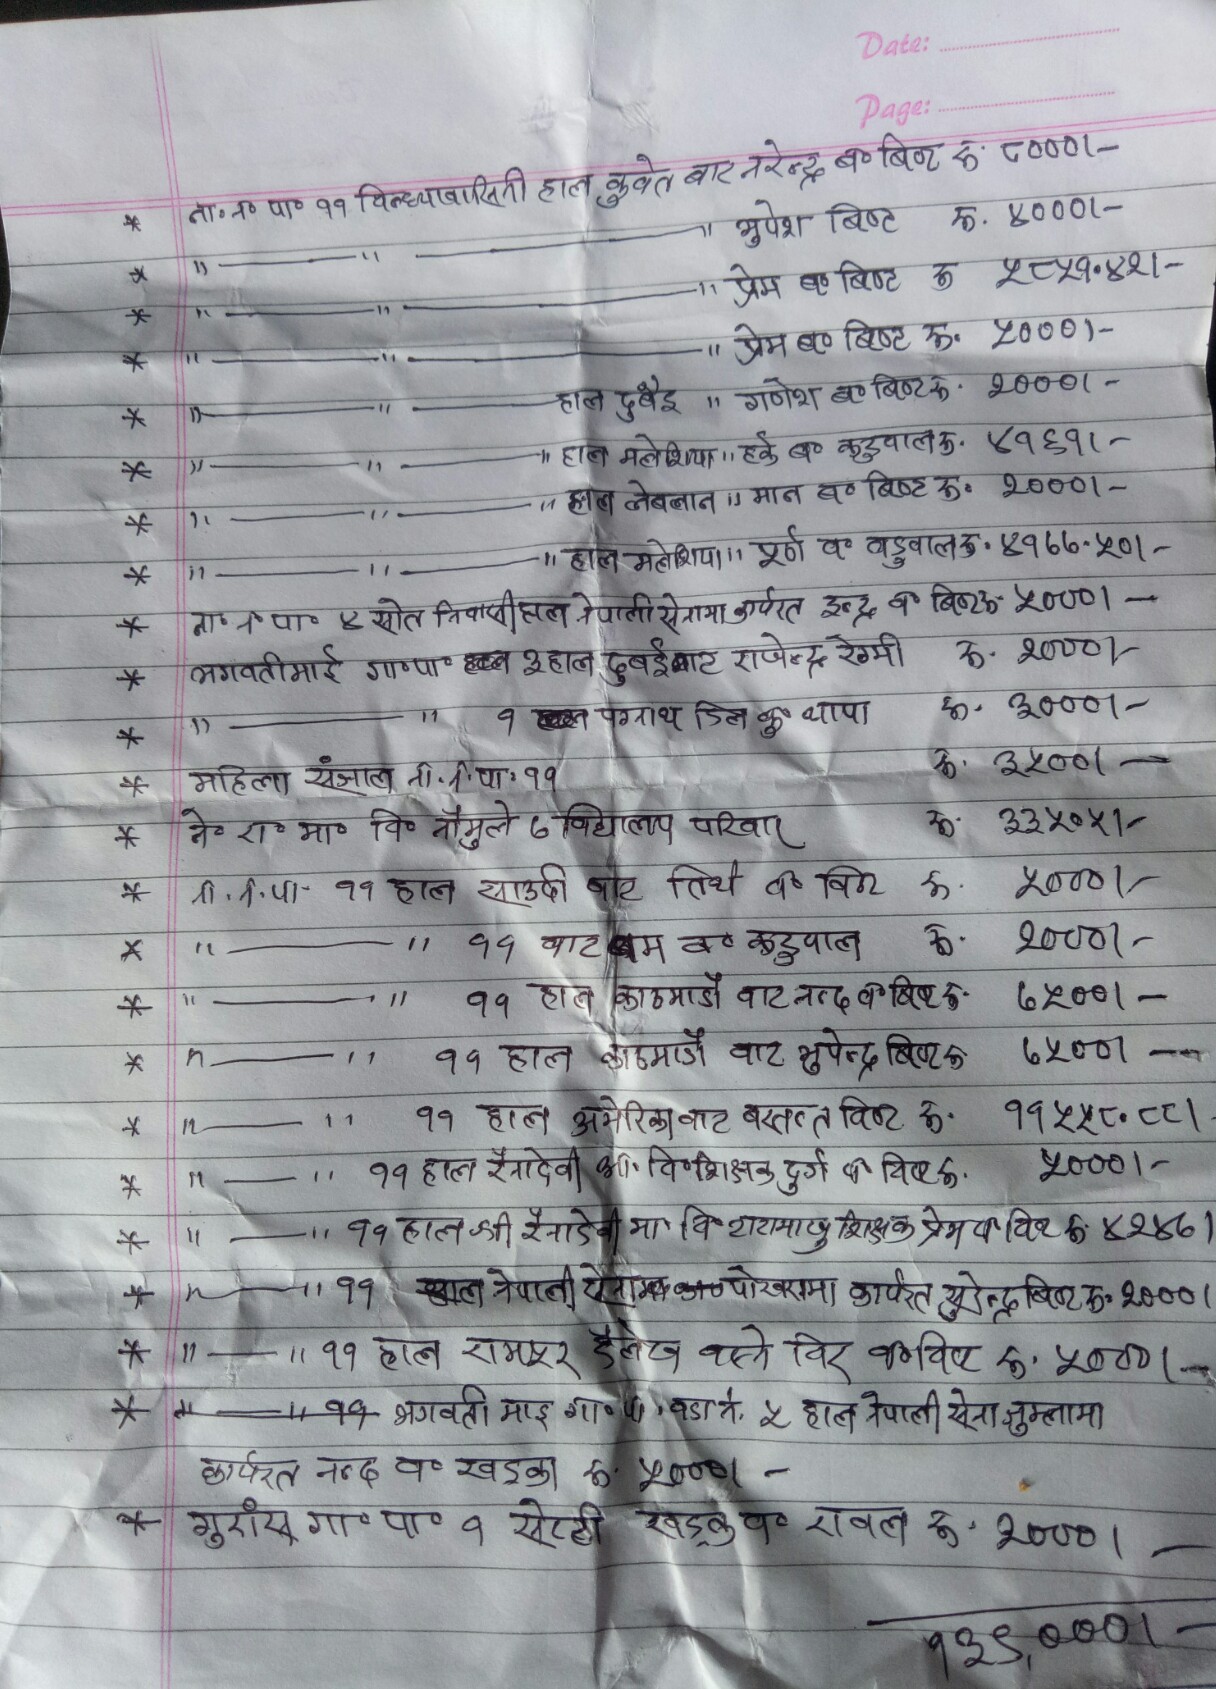 Date:
Page:
* ना.न० पा० ११ विन्ध्यावासिनी हाल कुवेत बाट नरेन्द्र ब० बिष्ट रु. ८०००।-
* " —— " —— " भुपेश बिष्ट रु. ४०००।-
* " —— " —— " प्रेम ब० बिष्ट रु ५८५१.४२।-
* " —— " —— " प्रेम ब० बिष्ट रु. ५०००।-
* " —— " —— हाल दुबई " गणेश ब० बिष्ट रु. २०००।-
* " —— " —— " हाल मलेशिया " हर्क ब० कडुवाल रु. ४१६१।-
* " —— " —— " हाल लेबनान " मान ब० बिष्ट रु. २०००।-
* " —— " —— " हाल मलेशिया " पूर्ण ब० कडुवाल रु. ४१७७.५०।-
* ना० न० पा० ४ सोल निवासी हाल नेपाली सेनामा कार्यरत इन्द्र ब० बिष्ट रु. ५०००।-
* भगवतीमाई गा०पा० ३ हाल दुबईबाट राजेन्द्र रेग्मी रु. २०००।-
* " —— " १ पगनाथ डिल कु० थापा रु. ३०००।-
* महिला संजाल ना.न.पा. ११ रु. ३५००।-
* ने० रा० मा० वि० नौमुले ७ विद्यालय परिवार रु. ३३५०५।-
* ना.न.पा- ११ हाल साउदी बाट तिर्थ ब० बिष्ट रु. ५०००।-
* " —— " ११ बाट ब० कडुवाल रु. २०००।-
* " —— " ११ हाल काठमाडौं बाट नन्द ब० बिष्ट रु. ७५००।-
* " —— " ११ हाल काठमाडौं बाट भुपेन्द्र बिष्ट रु ७५००।-
* " —— " ११ हाल अमेरिकाबाट बसन्त बिष्ट रु. ११५५८.८८।-
* " —— " ११ हाल रैनादेवी आ. वि० शिक्षक दुर्ग ब० बिष्ट रु. ५०००।-
* " —— " ११ हाल श्री रैनादेवी मा० वि० शिक्षक प्रेम ब० बिष्ट रु ४२४७।
* " —— " ११ हाल नेपाली पोखरामा कार्यरत सुरेन्द्र बिष्ट रु. २०००।
* " —— " ११ हाल रामपुर दैलेख बस्ने विर ब० बिष्ट रु. ५०००।-
* " —— " ११ भगवती माइ गा०पा. वडा नं. ५ हाल नेपाली सेना जुम्लामा
कार्यरत नन्द ब० खड्का रु. ५०००।-
* गुराँस गा० पा० १ सेट्टी खड्क ब० रावल रु. २०००।-
१३९,०००।-